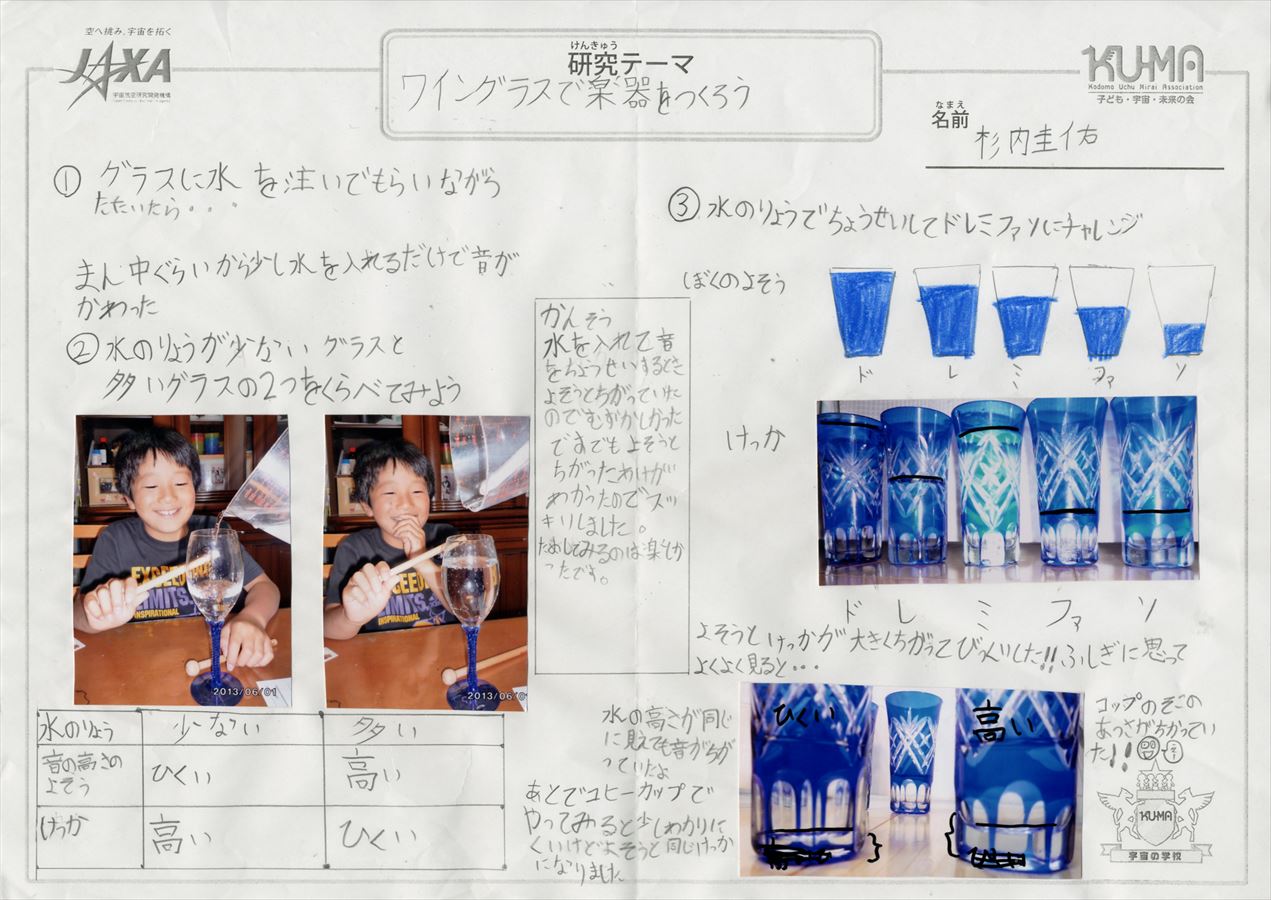 空へ挑み、宇宙を拓く
JAXA
宇宙航空研究開発機構
けんきゅう
研究テーマ
ワイングラスで楽器をつくろう
KU-MA
Kodomo Uchu Mirai Association
子ども・宇宙・未来の会
なまえ
名前
杉内圭佑
① グラスに水を注いでもらいながら
たたいたら・・・
まん中ぐらいから少し水を入れるだけで音が
かわった
② 水のりょうが少ないグラスと
多いグラスの2つをくらべてみよう
EXCEED
LIMITS.
INSPIRATIONAL
2013/06/01
EXCEED
LIMITS.
INSPIRATIONAL
2013/06/0
水のりょう 少ない 多い
音の高さの
よそう
ひくい 高い
けっか 高い ひくい
かんそう
水を入れて音
をちょうせいするとき
よそうとちがっていた
のでむずかしかった
ですでもよそうと
ちがったわけが
わかったのでスッ
キリしました。
ためしてみるのは楽しか
ったです。
③ 水のりょうでちょうせいしてドレミファソにチャレンジ
ぼくのよそう
ド レ ミ ファ ソ
けっか
ド レ ミ ファ ソ
よそうとけっかが大きくちがってびっくりした!!ふしぎに思って
よくよく見ると・・・
水の高さが同じ
に見えても音がちが
っていたよ
ひくい
高い
コップのそこの
あつさがちがってい
た!!
あとでコヒーカップで
やってみると少しわかりに
くいけどよそうと同じけっか
になりました
KU-MA
宇宙の学校